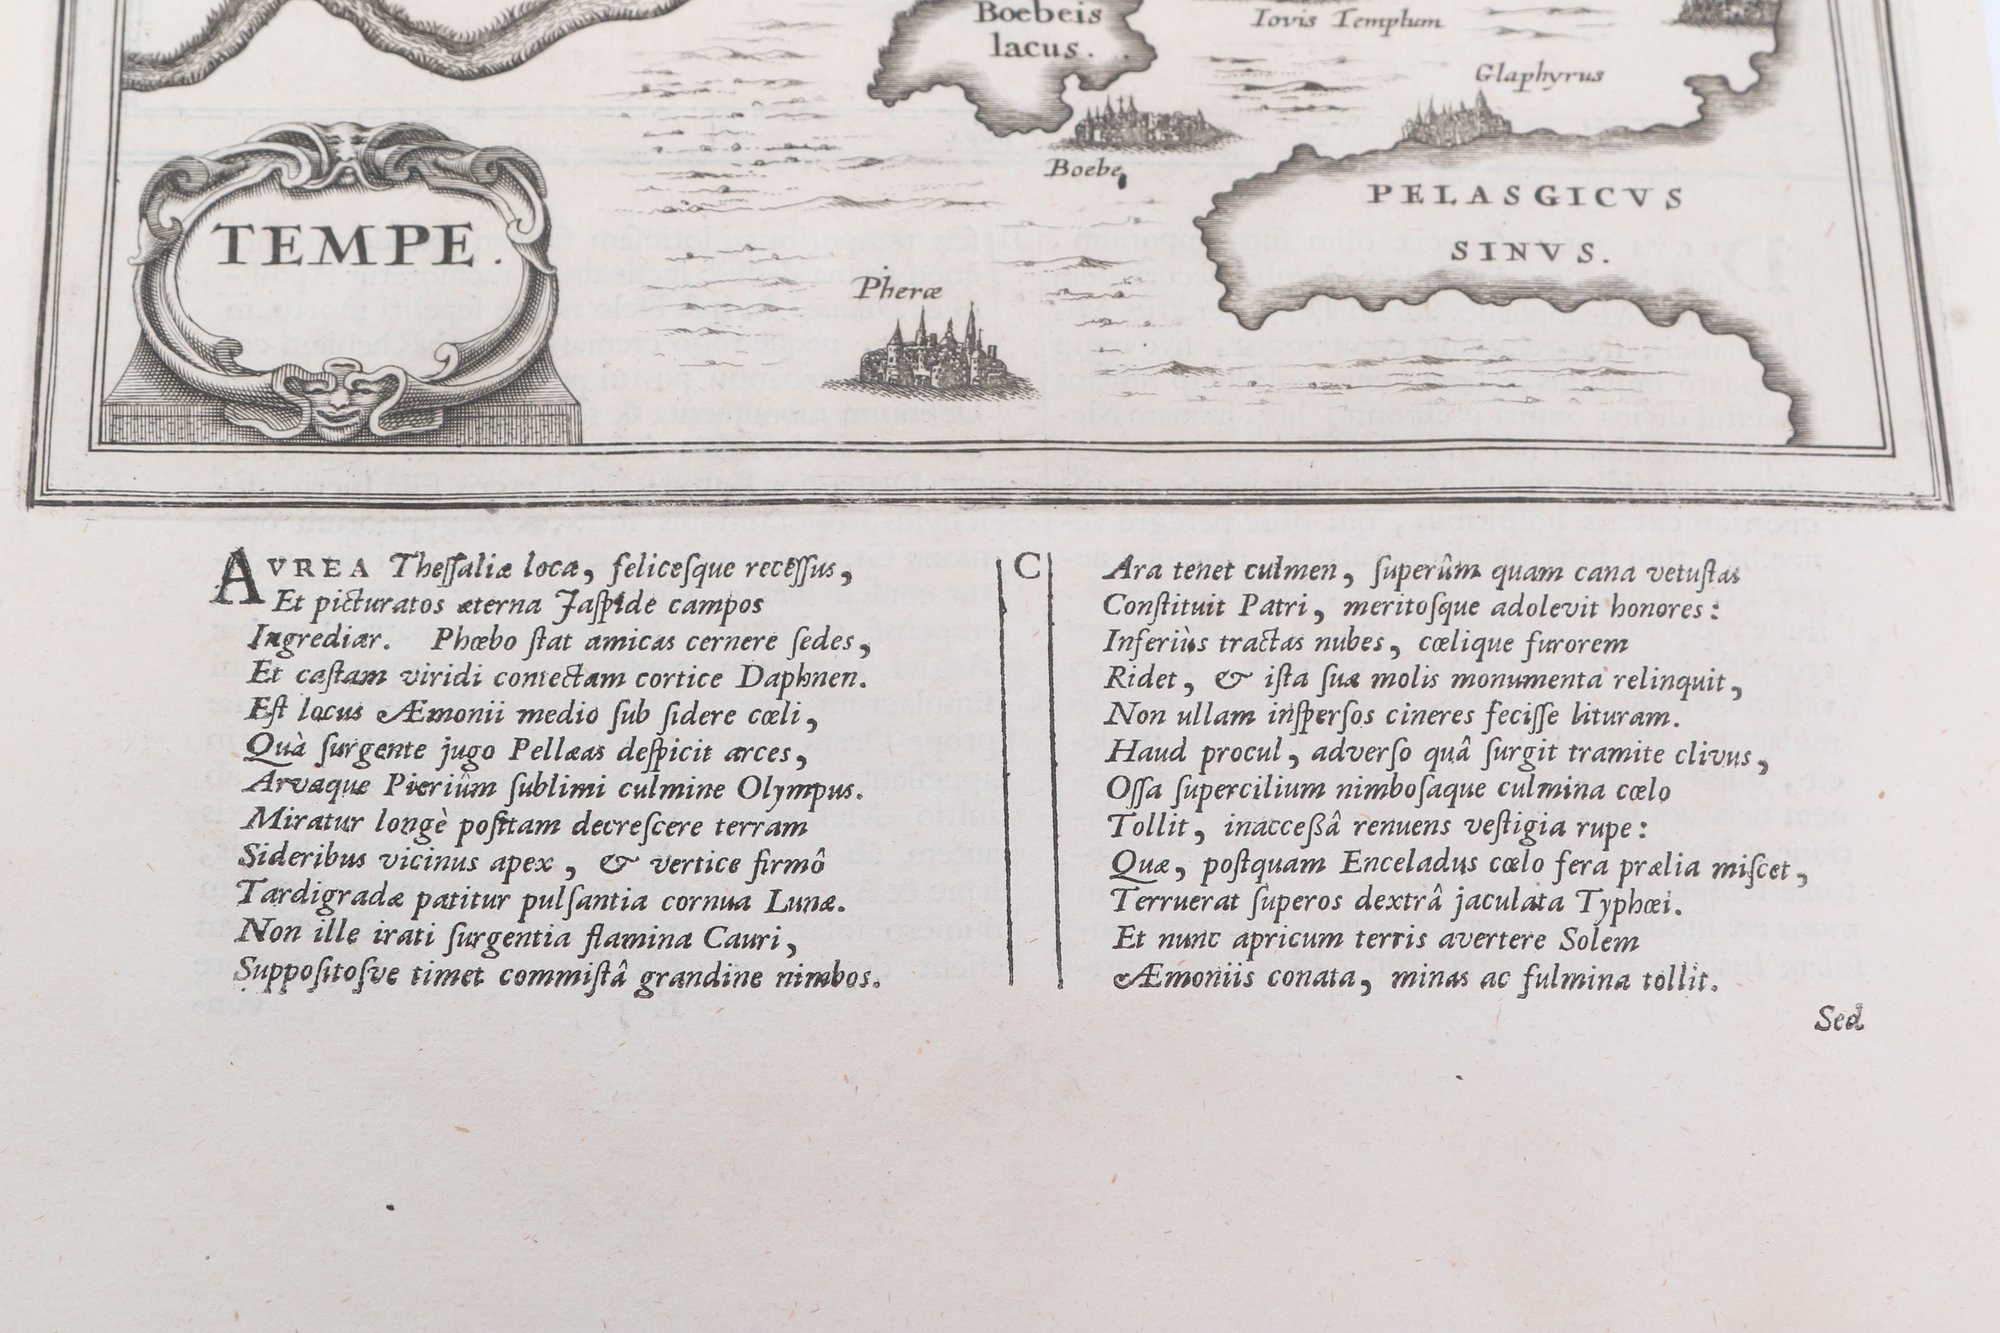 Boebeis
lacus.
Iovis Templum
Glaphyrus
Boebe
PELASGICVS
SINVS.
TEMPE.
Pheræ
AVREA Theſſaliæ loca, feliceſque receſſus,
Et picturatos æterna Jaſpide campos
Ingrediar. Phœbo ſtat amicas cernere ſedes,
Et caſtam viridi contectam cortice Daphnen.
Eſt locus Æmonii medio ſub ſidere cœli,
Quà ſurgente jugo Pellæas deſpicit arces,
Arvaque Pieriûm ſublimi culmine Olympus.
Miratur longè poſitam decreſcere terram
Sideribus vicinus apex, & vertice firmô
Tardigradæ patitur pulſantia cornua Lunæ.
Non ille irati ſurgentia flamina Cauri,
Suppoſitoſve timet commiſtâ grandine nimbos.
C
Ara tenet culmen, ſuperûm quam cana vetuſtas
Conſtituit Patri, meritoſque adolevit honores:
Inferiùs tractas nubes, cœlique furorem
Ridet, & iſta ſuæ molis monumenta relinquit,
Non ullam inſperſos cineres feciſſe lituram.
Haud procul, adverſo quâ ſurgit tramite clivus,
Oſſa ſupercilium nimboſaque culmina cœlo
Tollit, inacceßâ renuens veſtigia rupe:
Quæ, poſtquam Enceladus cœlo fera prælia miſcet,
Terruerat ſuperos dextrâ jaculata Typhœi.
Et nunc apricum terris avertere Solem
Æmoniis conata, minas ac fulmina tollit.
Sed